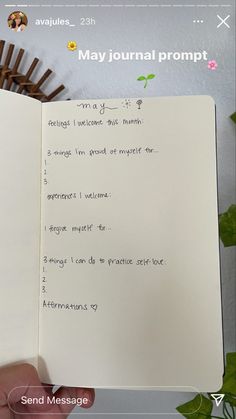 avajules_ 23h
May journal prompt
may
feelings I welcome this month:
3 things I'm proud of myself for...
1.
2
3
experiences I welcome:
I forgive myself for...
3 things I can do to practice self-love:
1.
2
3.
Affirmations ♡
Send Message